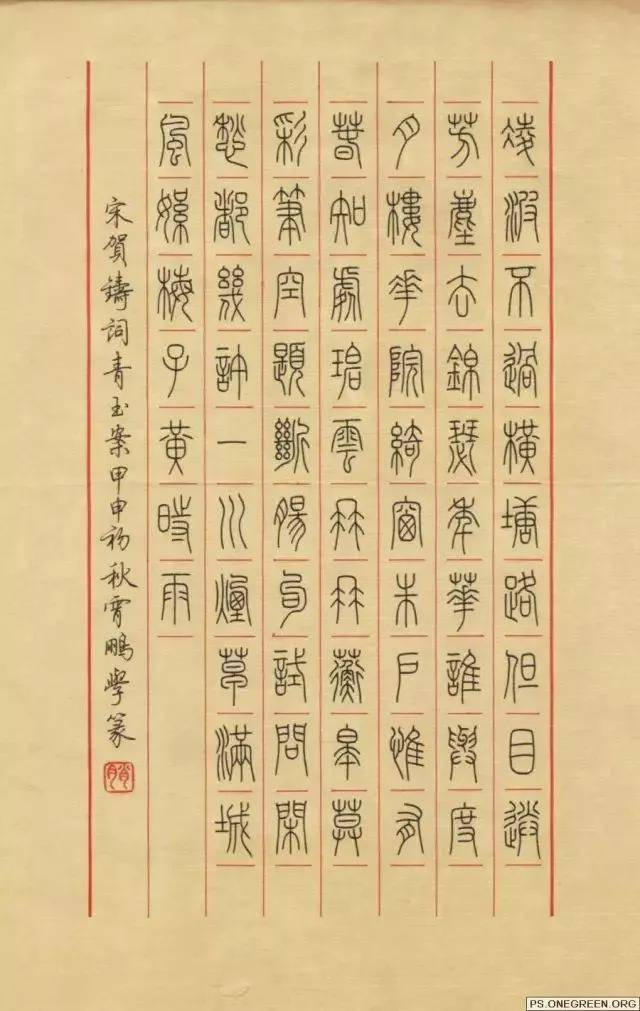 凌波不過橫塘路但目送
芳塵去錦瑟年華誰與度
月樓花院綺窗朱戶惟有
春知處碧雲冉冉蘅皋暮
彩筆空題斷腸句試問閑
愁都幾許一川煙草滿城
風絮梅子黃時雨
宋賀鑄詞青玉案甲申初秋霄鵬學篆
PS.ONEGREEN.ORG